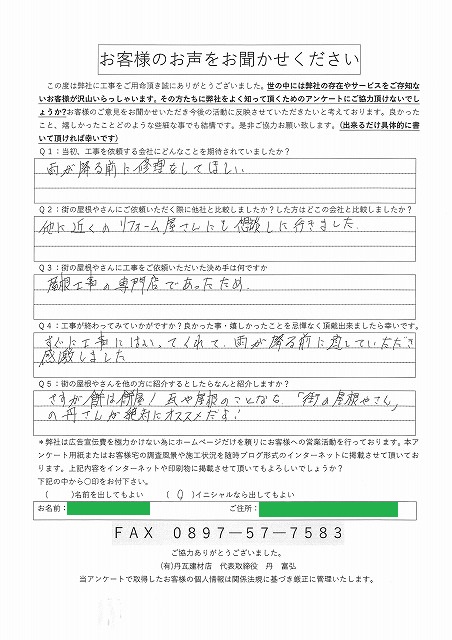 お客様のお声をお聞かせください
この度は弊社に工事をご用命頂き誠にありがとうございました。世の中には弊社の存在やサービスをご存知な
いお客様が沢山いらっしゃいます。その方たちに弊社をよく知って頂くためのアンケートにご協力頂けないでし
ょうか?お客様のご意見をお聞かせいただき今後の活動に反映させていただきたいと考えております。良かった
こと、嬉しかったことどのような些細な事でも結構です。是非ご協力お願い致します。(出来るだけ具体的に書
いて頂ければ幸いです)
Q1:当初、工事を依頼する会社にどんなことを期待されていましたか?
雨が降る前に修理をしてほしい
Q2:街の屋根やさんにご依頼いただく際に他社と比較しましたか?した方はどこの会社と比較しましたか?
他に近くのリフォーム屋さんにも相談しに行きました
Q3:街の屋根やさんに工事をご依頼いただいた決め手は何ですか
屋根工事の専門店であったため.
Q4:工事が終わってみていかがですか?良かった事・嬉しかったことを忌憚なく頂戴出来ましたら幸いです。
すぐに工事にはいってくれて、雨が降る前に直していただき
感激しました
Q5:街の屋根やさんを他の方に紹介するとしたらなんと紹介しますか?
さすが餅は餅屋! 瓦や屋根のことなら、「街の屋根やさん」
の丹さんが絶対にオススメだよ!
*弊社は広告宣伝費を極力かけない為にホームページだけを頼りにお客様への営業活動を行っております。本ア
ンケート用紙またはお客様宅の調査風景や施工状況を随時ブログ形式のインターネットに掲載させて頂いてお
ります。上記内容をインターネットや印刷物に掲載させて頂いてもよろしいでしょうか?
下記の中から○印をお付下さい。
( )名前を出してもよい ( ○ )イニシャルなら出してもよい
お名前: ご住所:
FAX 0897-57-7583
ご協力ありがとうございました。
(有)丹瓦建材店 代表取締役 丹 富弘
当アンケートで取得したお客様の個人情報は関係法規に基づき厳正に管理いたします。